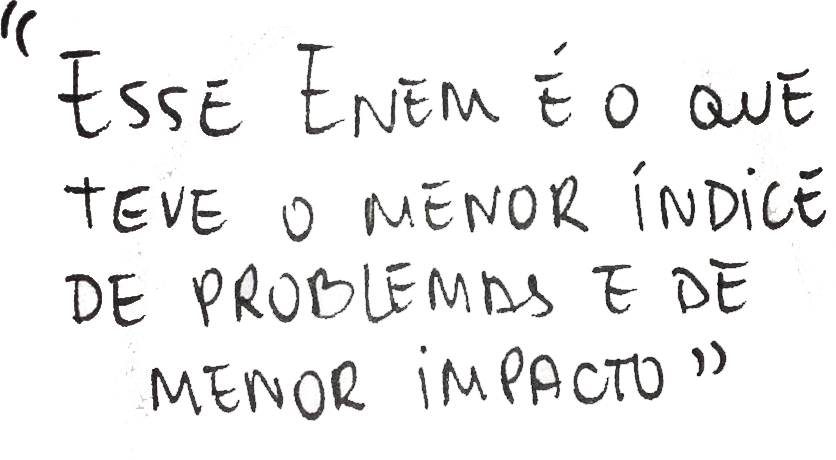 "Esse Enem é o que
teve o menor índice
de problemas e de
menor impacto"